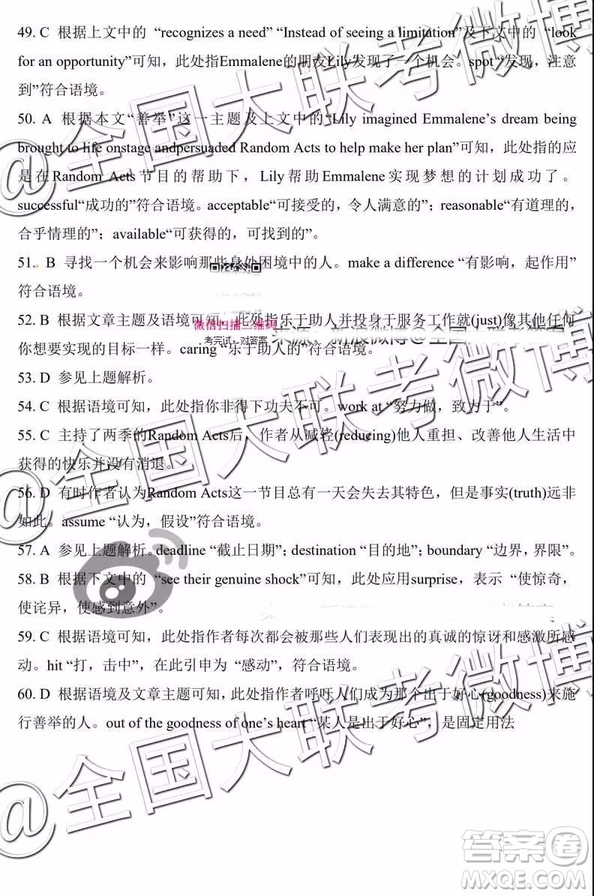 49. C 根据上文中的 “recognizes a need” “Instead of seeing a limitation”及下文中的 “look
for an opportunity”可知，此处指Emmalene的朋友Lily发现了一个机会。spot “发现，注意
到”符合语境。
50. A 根据本文“善举”这一主题及上文中的“Lily imagined Emmalene’s dream being
brought to life onstage andpersuaded Random Acts to help make her plan”可知，此处指的应
是在Random Acts节目的帮助下，Lily帮助Emmalene实现梦想的计划成功了。
successful“成功的”符合语境。acceptable“可接受的，令人满意的”；reasonable“有理的，
合乎情理的”；available“可获得的，可找到的”。
51. B 寻找一个机会来影响那些身处困境中的人。make a difference “有影响，起作用”
符合语境。
52. B 根据文章主题及语境可知，此处指乐于助人并投身于服务工作就(just)像其他任何
微信扫描二维码
考完试，对答案
你想要实现的目标一样。caring “乐于助人的”符合语境。
53. D 参见上题解析。
54. C 根据语境可知，此处指非得下功夫不可。work at “努力做，致力于”。
55. C 主持了两季的Random Acts后，作者从减轻(reducing)他人重担、改善他人生活中
获得的快乐并没有消退。
56. D 有时作者认为Random Acts这一节目总有一天会失去其特色，但是事实(truth)远非
如此。assume “认为，假设”符合语境。
57. A 参见上题解析。deadline “截止日期”；destination “目的地”；boundary “边界，界限”。
58. B 根据下文中的 “see their genuine shock”可知，此处应用surprise，表示 “使惊奇，
使诧异，使感到意外”。
59. C 根据语境可知，此处指作者每次都会被那些人们表现出的真诚的惊讶和感激所感
动。hit “打，击中”，在此引申为 “感动”，符合语境。
60. D 根据语境及文章主题可知，此处指作者呼吁人们成为那些出于好心(goodness)来施
行善举的人。out of the goodness of one’s heart “某人是出于好心”，是固定用法
@全国大联考微博
@全国大联考微博
@全国大联考微博
答案卷
MXQE.COM